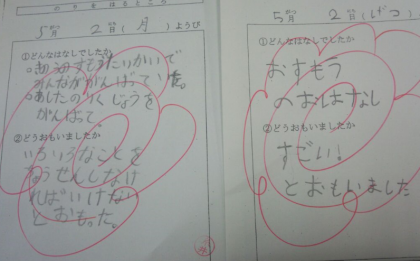 5がつ 2にち(月)ようび
①どんなはなしでしたか
がんばって
あしたの
じょうを
がんばって
②どうおもいましたか
いろいろなことを
ちょうせんしなけ
ればいけない
とおもった。
5がつ 2にち(げつ)
①どんなはなしでしたか
おすもう
のおはなし
②どうおもいましたか
すごい!
とおもいました